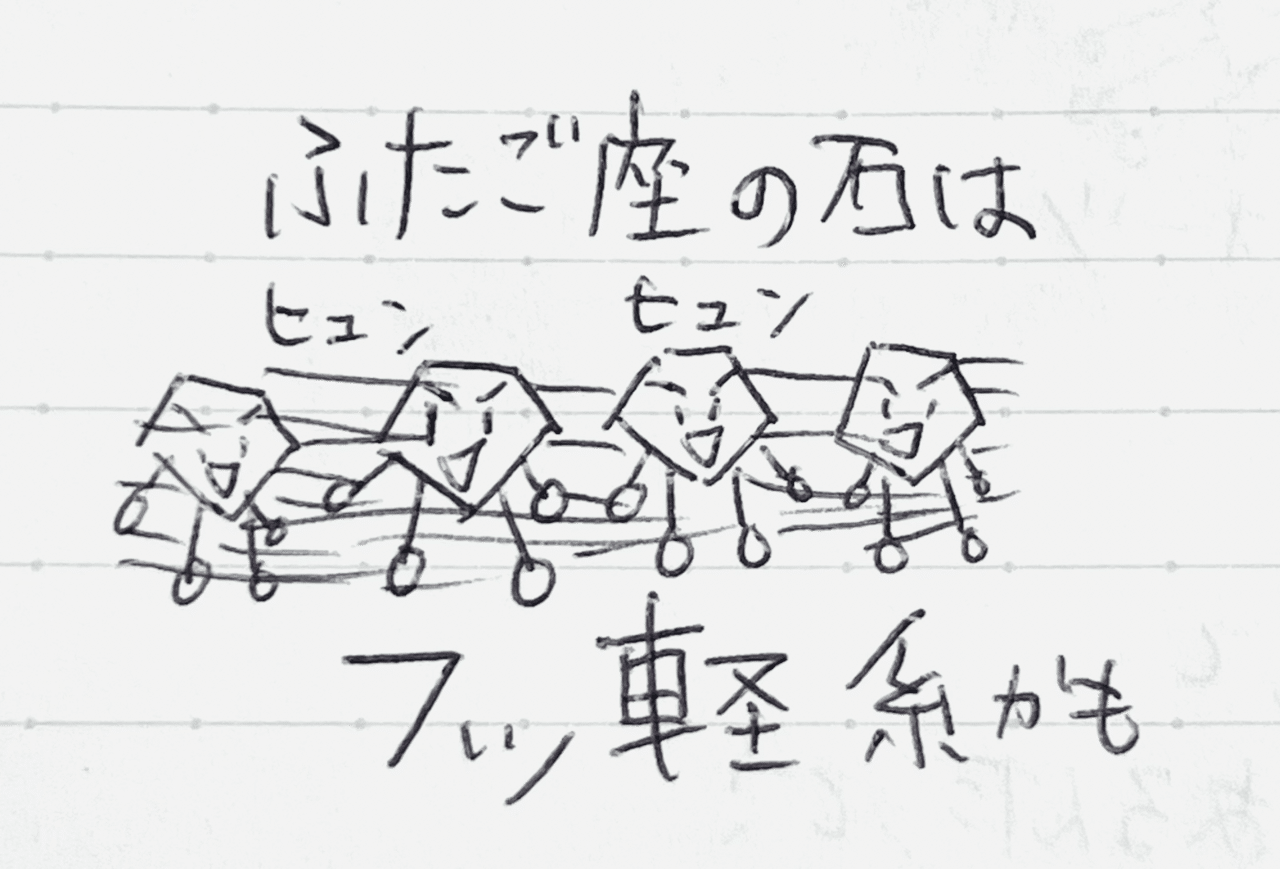 ふたご座の石は
ヒュン ヒュン
フッ軽糸かも